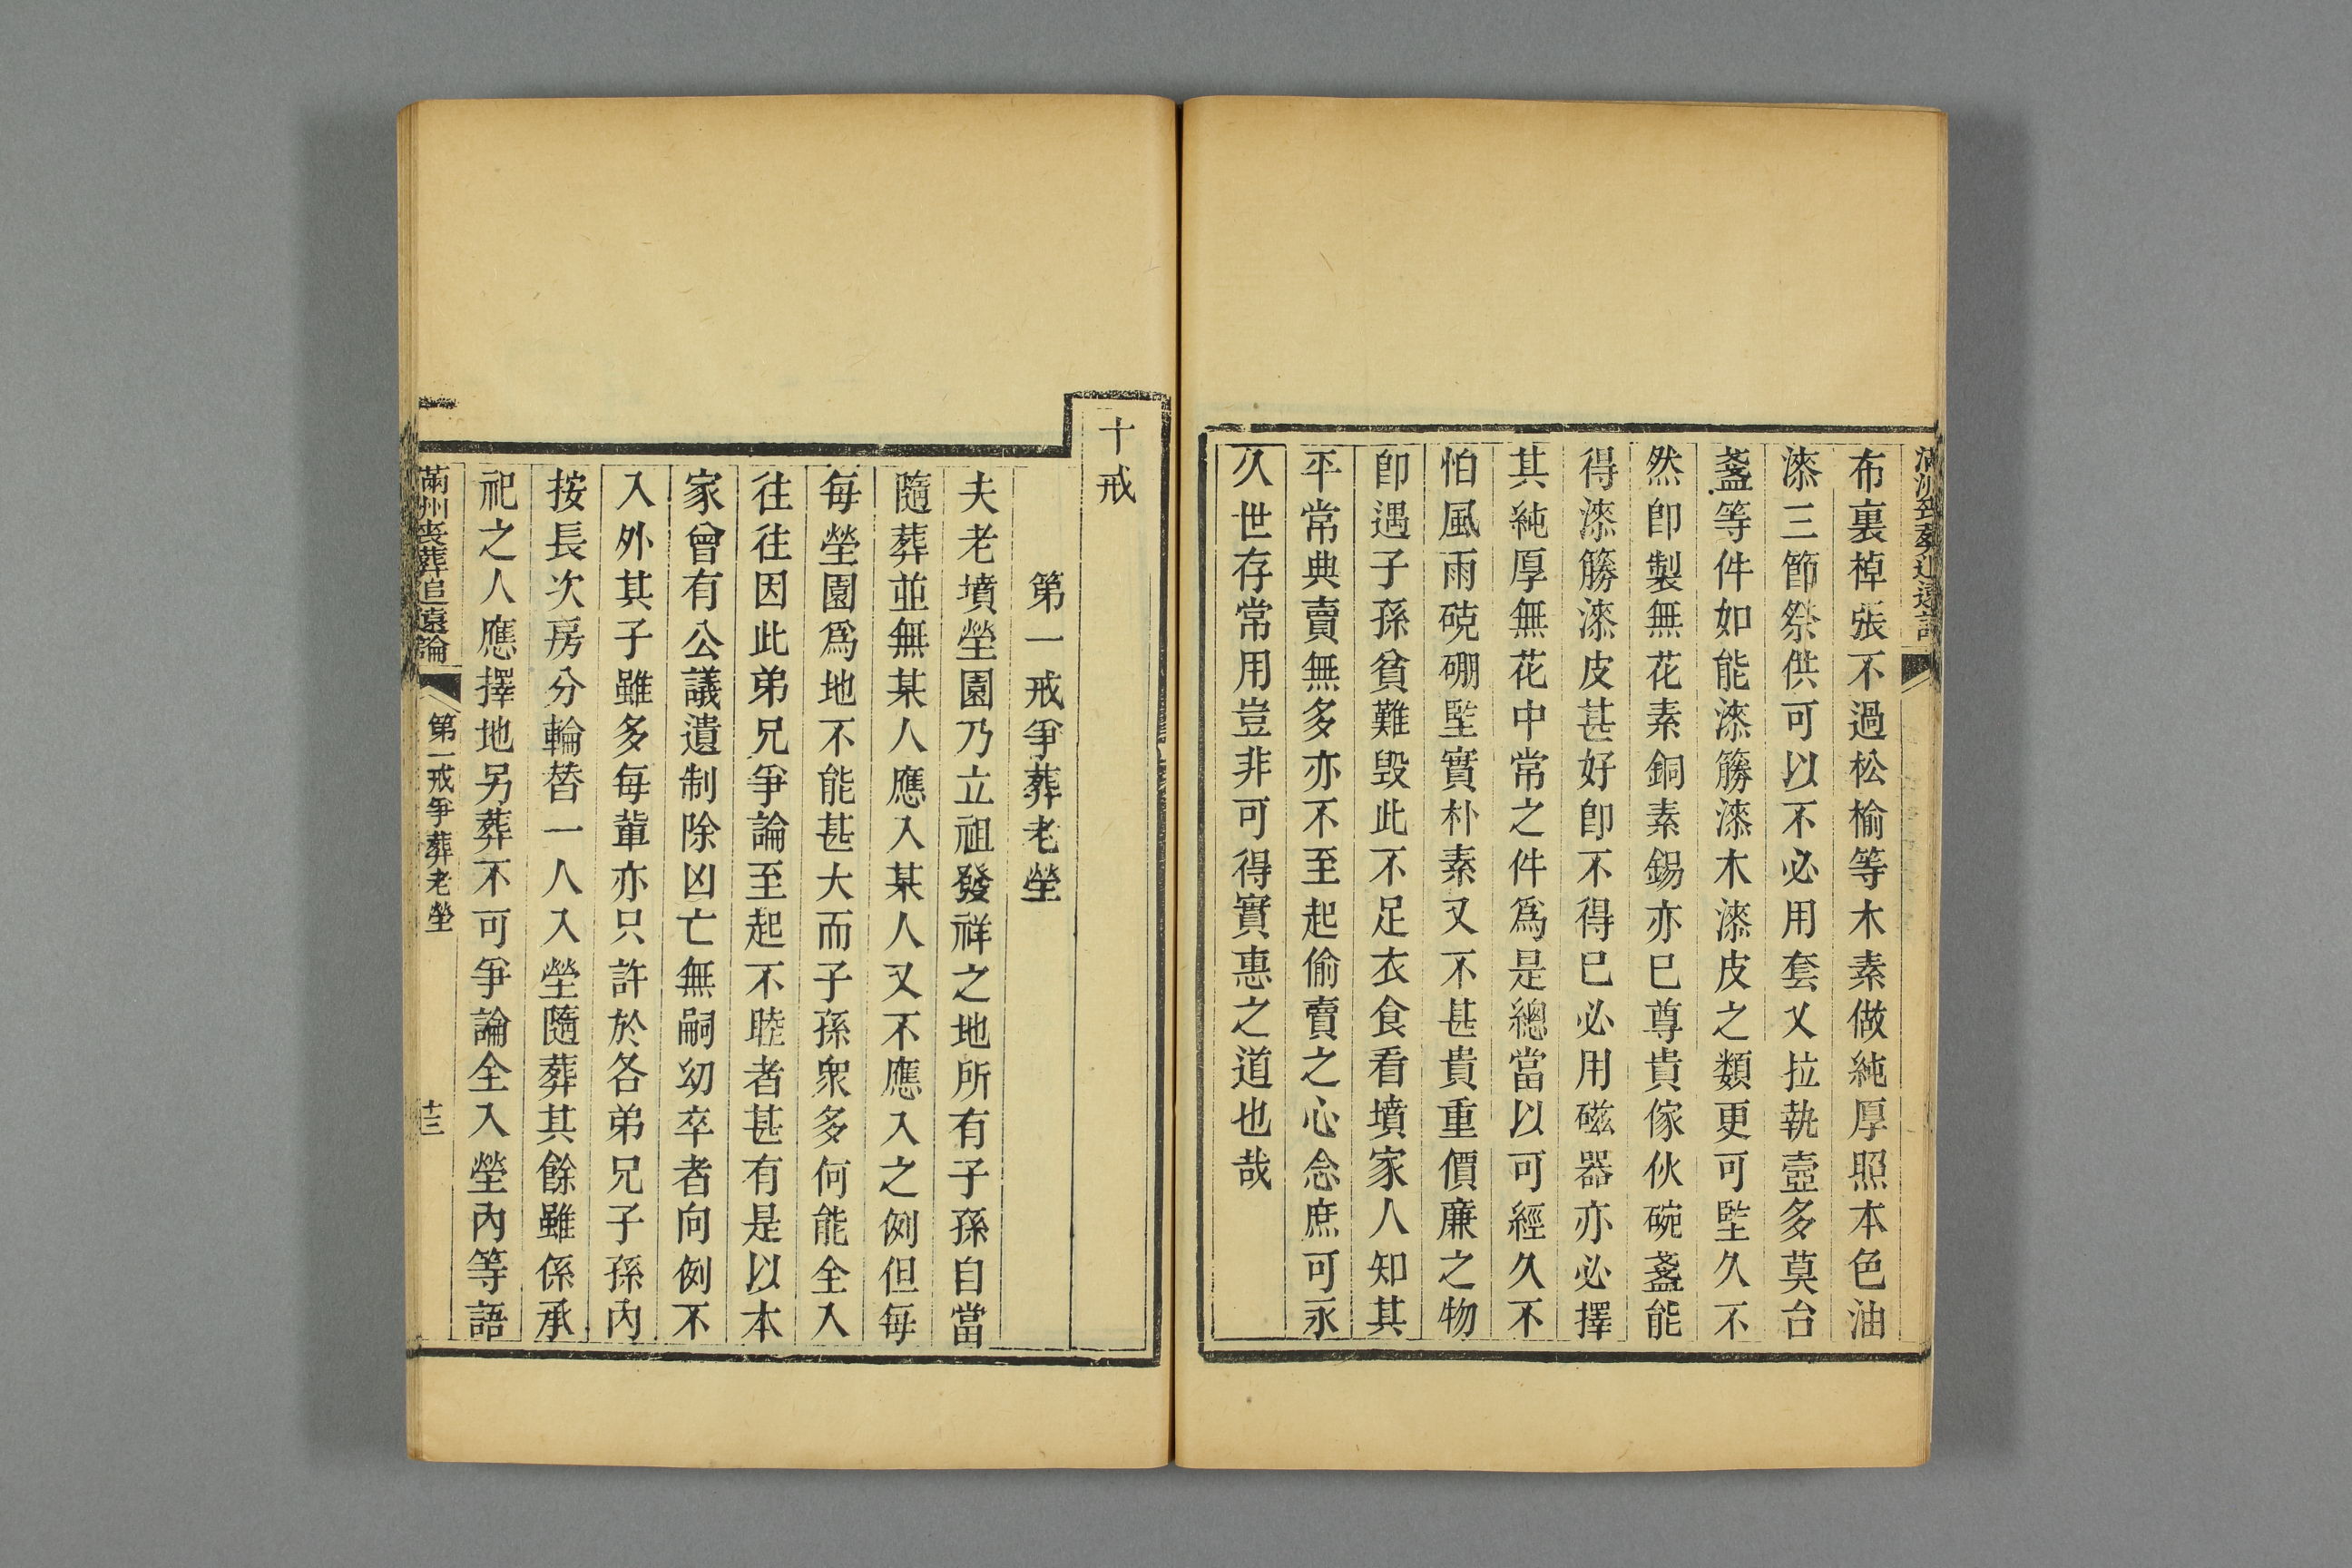 滿洲喪葬追遠論
布裏棹張不過松榆等木素做純厚照本色油
漆三節祭供可以不必用套又拉執壺多莫台
盞等件如能漆篾漆木漆皮之類更可堅久不
然卽製無花素銅素錫亦已尊貴傢伙碗盞能
得漆篾漆皮甚好卽不得已必用磁器亦必擇
其純厚無花中常之件爲是總當以可經久不
怕風雨硗硼堅實朴素又不甚貴重價廉之物
卽遇子孫貧難毀此不足衣食看墳家人知其
平常典賣無多亦不至起偷賣之心念庶可永
久世存常用豈非可得實惠之道也哉
十戒
第一戒爭葬老塋
夫老墳塋園乃立祖發祥之地所有子孫自當
隨葬並無某人應入某人又不應入之例但每
每塋園爲地不能甚大而子孫衆多何能全入
往往因此弟兄爭論至起不睦者甚有是以本
家曾有公議遺制除凶亡無嗣幼卒者向例不
入外其子雖多每輩亦只許於各弟兄子孫內
按長次房分輪替一人入塋隨葬其餘雖係承
祀之人應擇地另葬不可爭論全入塋內等語
滿洲喪葬追遠論
第一戒爭葬老塋
十三